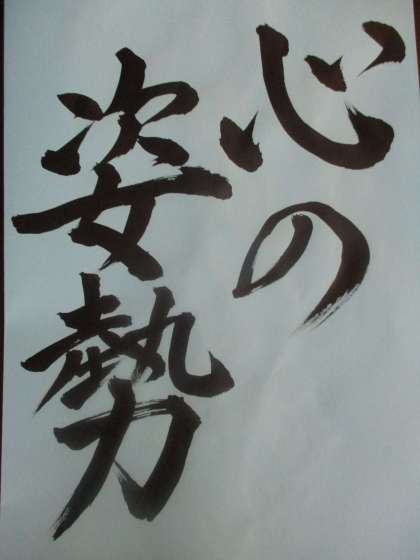 心の
姿勢